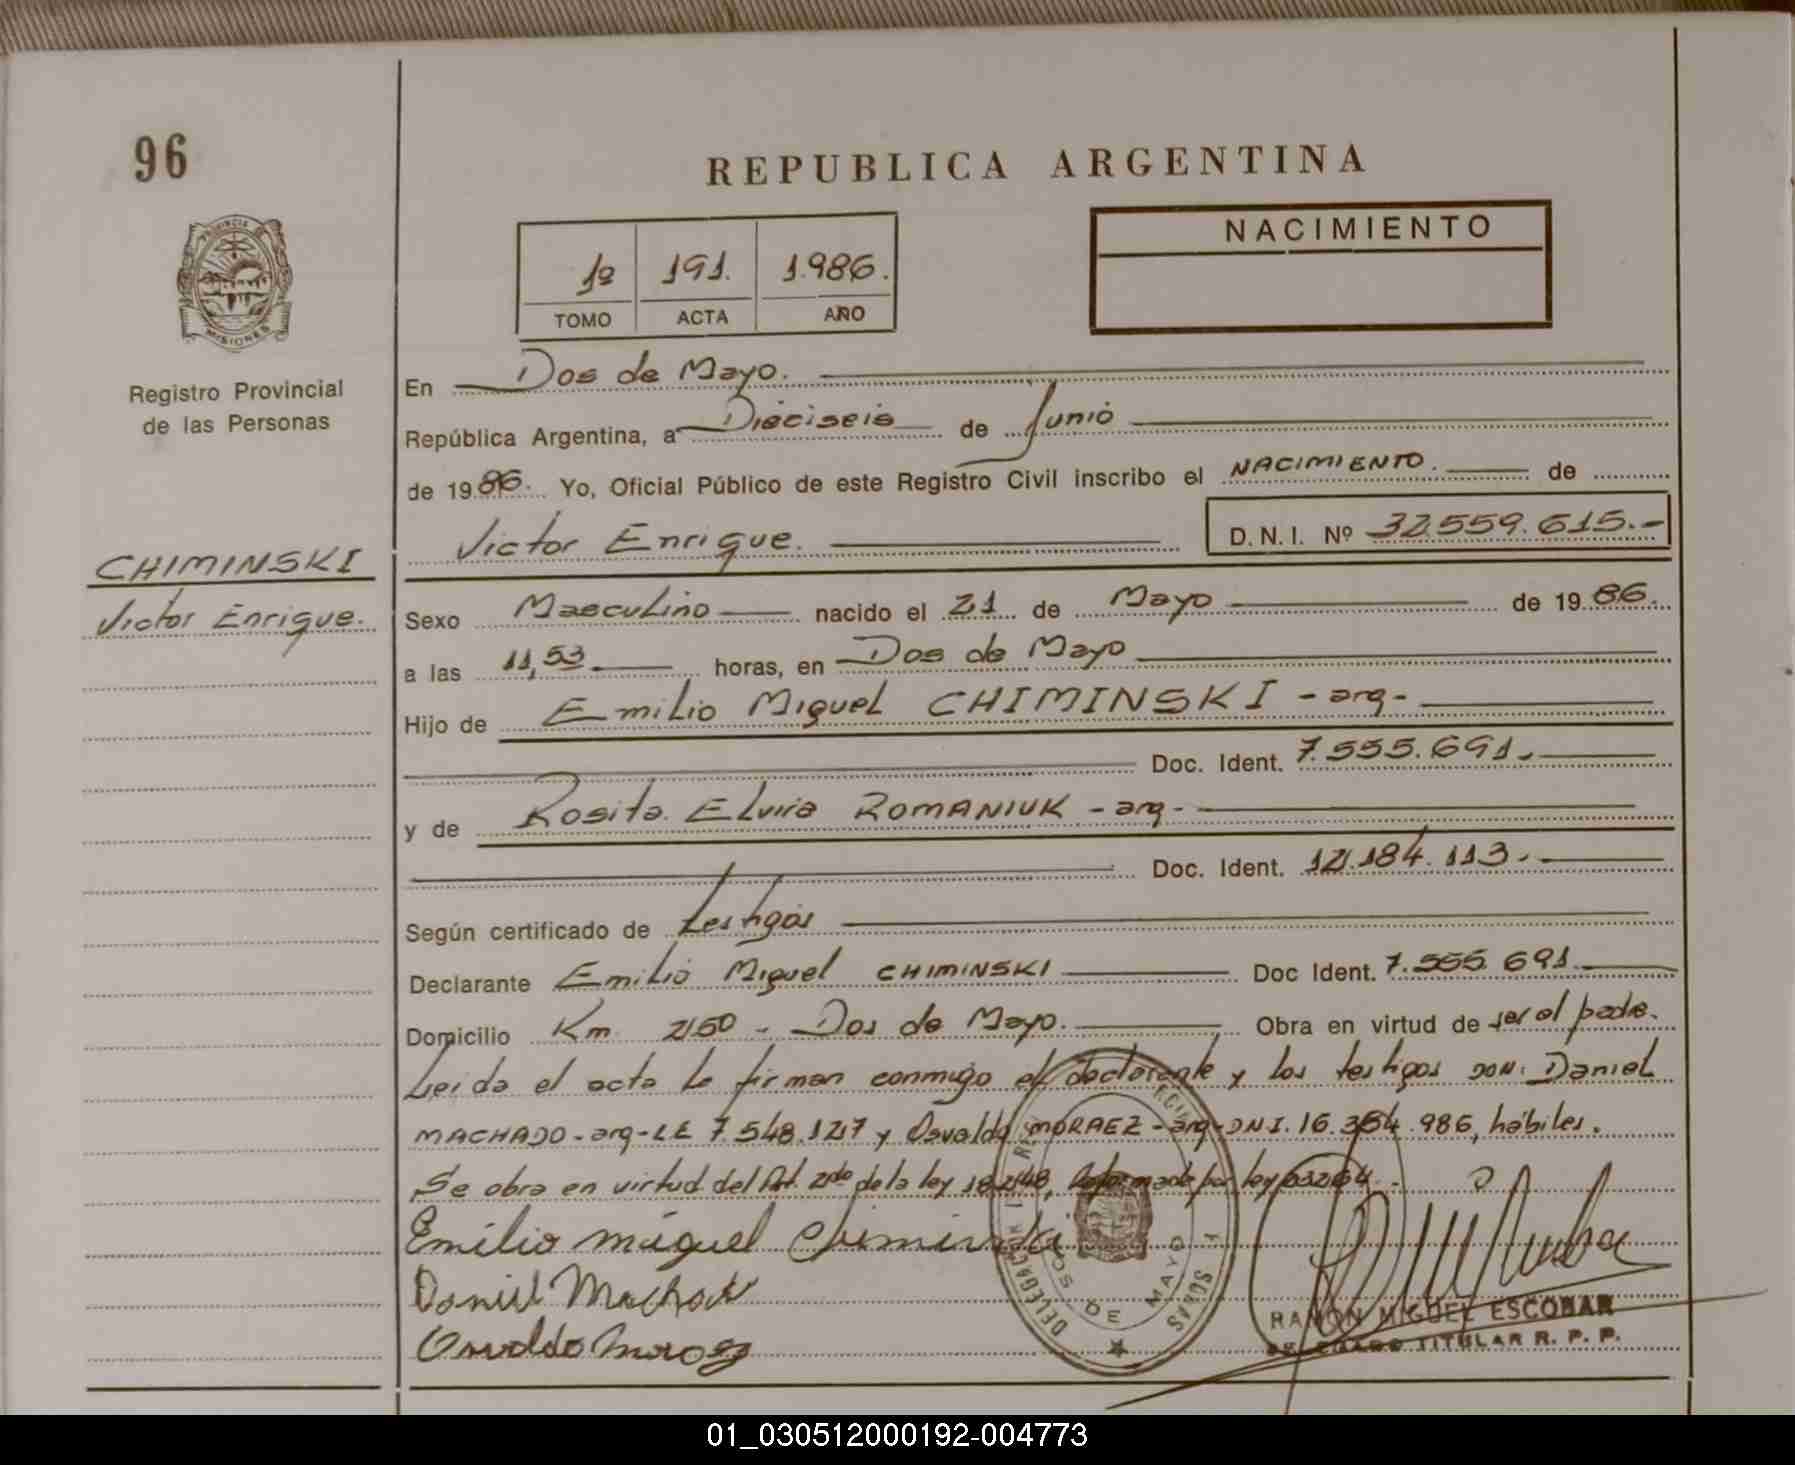 96
REPUBLICA ARGENTINA
NACIMIENTO
1º 191. 1.986.
TOMO ACTA AÑO
PROVINCIA DE
MISIONES
Registro Provincial
de las Personas
CHIMINSKI
Victor Enrique.
En Dos de Mayo.
República Argentina, a Dieciseis de Junio
de 1986. Yo, Oficial Público de este Registro Civil inscribo el NACIMIENTO. de
Victor Enrique. D.N.I. Nº 32.559.615.-
Sexo Masculino nacido el 21 de Mayo de 1986.
a las 11,53 horas, en Dos de Mayo
Hijo de Emilio Miguel CHIMINSKI - arg-
Doc. Ident. 7.555.691.
y de Rosita Elvira ROMANIUK - arg-
Doc. Ident. 12.184.113.
Según certificado de testigos
Declarante Emilio Miguel CHIMINSKI Doc Ident. 7.555.691
Domicilio Km 250 - Dos de Mayo. Obra en virtud de ser el padre.
Leida el acta la firman conmigo el declarante y los testigos DON: Daniel
MACHADO-arg-LE 7.548.127 y Osvaldo MORAEZ-arg-DNI.16.354.986, hábiles.
Se obra en virtud del Art. 2do de la ley 18.248, Reformada por ley
Emilio miguel Chiminski
Daniel Machado
Osvaldo Moraez
DOS DE MAYO
RAMON MIGUEL ESCOBAR
DELEGADO TITULAR R. P. P.
01_030512000192-004773